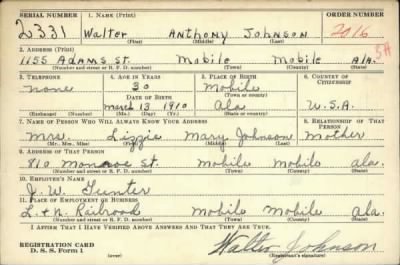 SERIAL NUMBER 1. NAME (Print) ORDER NUMBER
2331 Walter Anthony Johnson 2016
(First) (Middle) (Last)
3A
2. ADDRESS (Print)
1155 Adams St. Mobile Mobile Ala.
(Number and street or R. F. D. number) (Town) (County) (State)
3. TELEPHONE 4. AGE IN YEARS 5. PLACE OF BIRTH 6. COUNTRY OF CITIZENSHIP
none 30 Mobile
DATE OF BIRTH (Town or county)
March 13 1910 Ala U.S.A.
(Exchange) (Number) (Mo.) (Day) (Yr.) (State or country)
7. NAME OF PERSON WHO WILL ALWAYS KNOW YOUR ADDRESS 8. RELATIONSHIP OF THAT PERSON
Mrs. Lizzie Mary Johnson Mother
(Mr., Mrs., Miss) (First) (Middle) (Last)
9. ADDRESS OF THAT PERSON
810 Monroe St. Mobile Mobile Ala.
(Number and street or R. F. D. number) (Town) (County) (State)
10. EMPLOYER'S NAME
J. W. Gunter
11. PLACE OF EMPLOYMENT OR BUSINESS
L. & N. Railroad Mobile Mobile Ala.
(Number and street or R. F. D. number) (Town) (County) (State)
I AFFIRM THAT I HAVE VERIFIED ABOVE ANSWERS AND THAT THEY ARE TRUE.
REGISTRATION CARD Walter Johnson
D. S. S. Form 1 (over) (Registrant's signature)